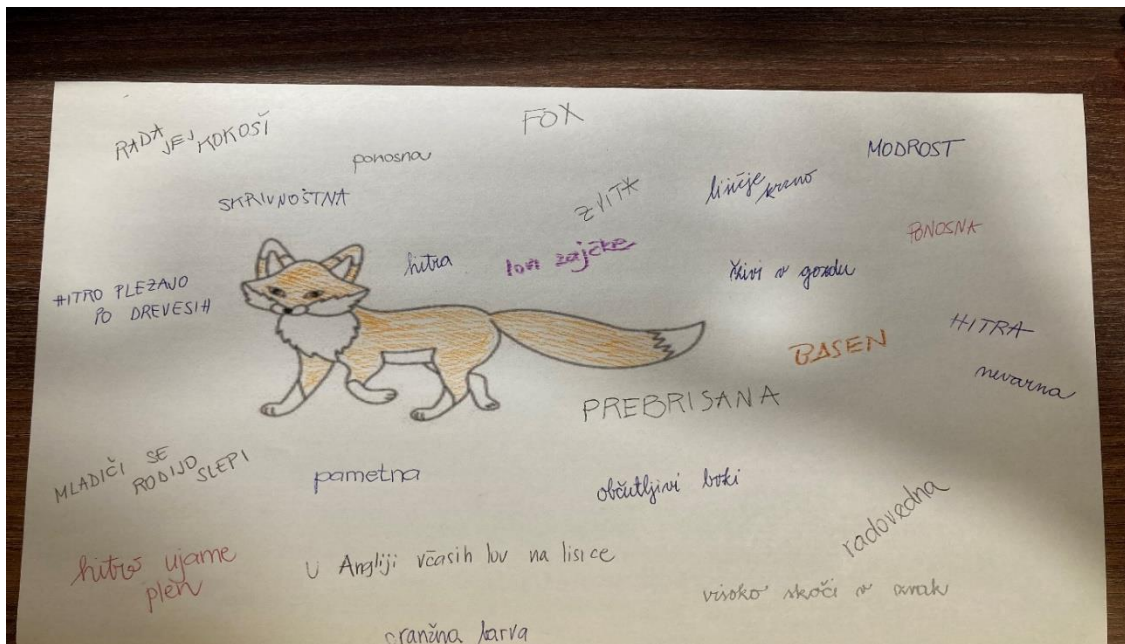 FOX
RADA JEJ KOKOŠI
ponosna
MODROST
SKRIVNOSTNA
ZVITA
lisičje krzno
PONOSNA
hitra
lovi zajčke
živi v gozdu
HITRO PLEZAJO
PO DREVESIH
HITRA
BASEN
nevarna
PREBRISANA
MLADIČI SE
RODIJO SLEPI
pametna
občutljivi boki
radovedna
hitro ujame
plen
U Angliji včasih lov na lisice
visoko skoči v zrak
oranžna barva